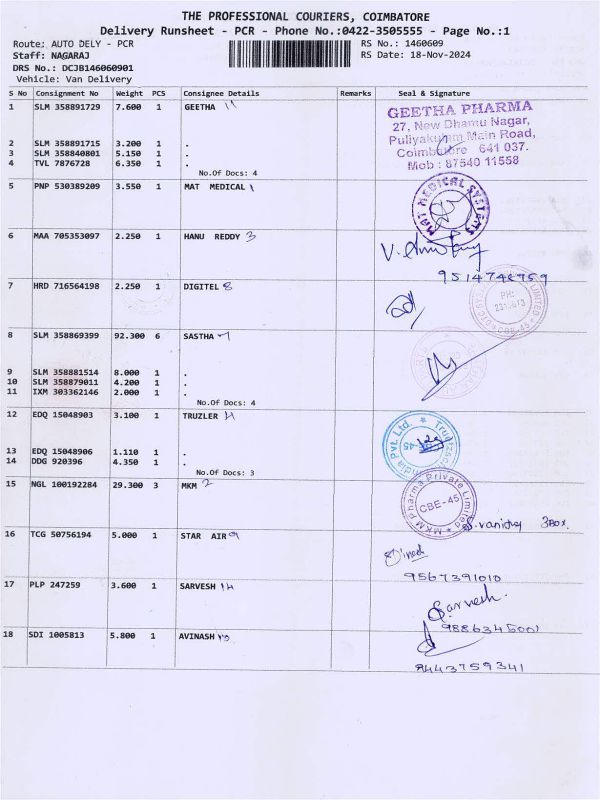 THE PROFESSIONAL COURIERS, COIMBATORE
Delivery Runsheet - PCR - Phone No.:0422-3505555 - Page No.:1
Route: AUTO DELY - PCR RS No.: 1460609
Staff: NAGARAJ RS Date: 18-Nov-2024
DRS No.: DCJB146060901
Vehicle: Van Delivery
S No Consignment No Weight PCS Consignee Details Remarks Seal & Signature
1 SLM 358891729 7.600 1 GEETHA 11
GEETHA PHARMA
27, New Dhamu Nagar,
Puliyakulam Main Road,
Coimbatore 641 037.
Mob : 87540 11558
2 SLM 358891715 3.200 1 .
3 SLM 358840801 5.150 1 .
4 TVL 7876728 6.350 1 .
No.Of Docs: 4
5 PNP 530389209 3.550 1 MAT MEDICAL 1
MAT MEDICAL SYSTEMS
6 MAA 705353097 2.250 1 HANU REDDY 3
7 HRD 716564198 2.250 1 DIGITEL 8
PH:
LIMITED
CBE-45
8 SLM 358869399 92.300 6 SASTHA 7
9 SLM 358881514 8.000 1 .
10 SLM 358879011 4.200 1 .
11 IXM 303362146 2.000 1 .
No.Of Docs: 4
12 EDQ 15048903 3.100 1 TRUZLER
India Pvt. Ltd.
13 EDQ 15048906 1.110 1 .
14 DDG 920396 4.350 1 .
No.Of Docs: 3
15 NGL 100192284 29.300 3 MKM 2
MKM Pharma Private Limited
CBE-45
S.vanitha 3BOX.
16 TCG 50756194 5.000 1 STAR AIR 9
9567391010
17 PLP 247259 3.600 1 SARVESH 14
Sarvesh.
9886345001
18 SDI 1005813 5.800 1 AVINASH
9443759341